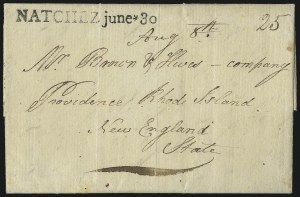 NATCHEZ june*30
Aug 8th 25
Mr. Brown & Ives - company
Providence Rhode Island
New England
State